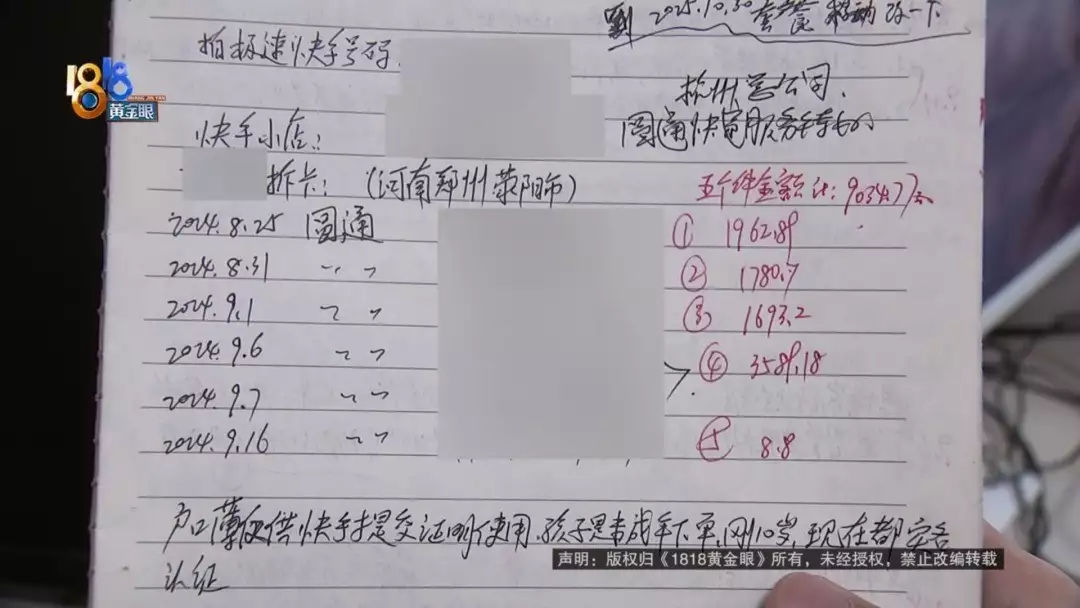 到 2025.10.30 套餐 移动 改一下
拍标速快手号码
杭州总公司.
1818
黄金眼
快手小店:
圆通快递服务转的
拆卡: (河南郑州荥阳市)
五个件金额计: 9034.77元
2024.8.25 圆通
① 1962.89
2024.8.31 〃 〃
② 1780.7
2024.9.1 〃 〃
③ 1693.2
2024.9.6 〃 〃
④ 3589.18
2024.9.7 〃 〃
2024.9.16 〃 〃
⑤ 8.8
户口薄仅供快手提交证明使用.孩子是未成年下单,刚10岁,现在都实名
认证
声明：版权归《1818黄金眼》所有，未经授权，禁止改编转载